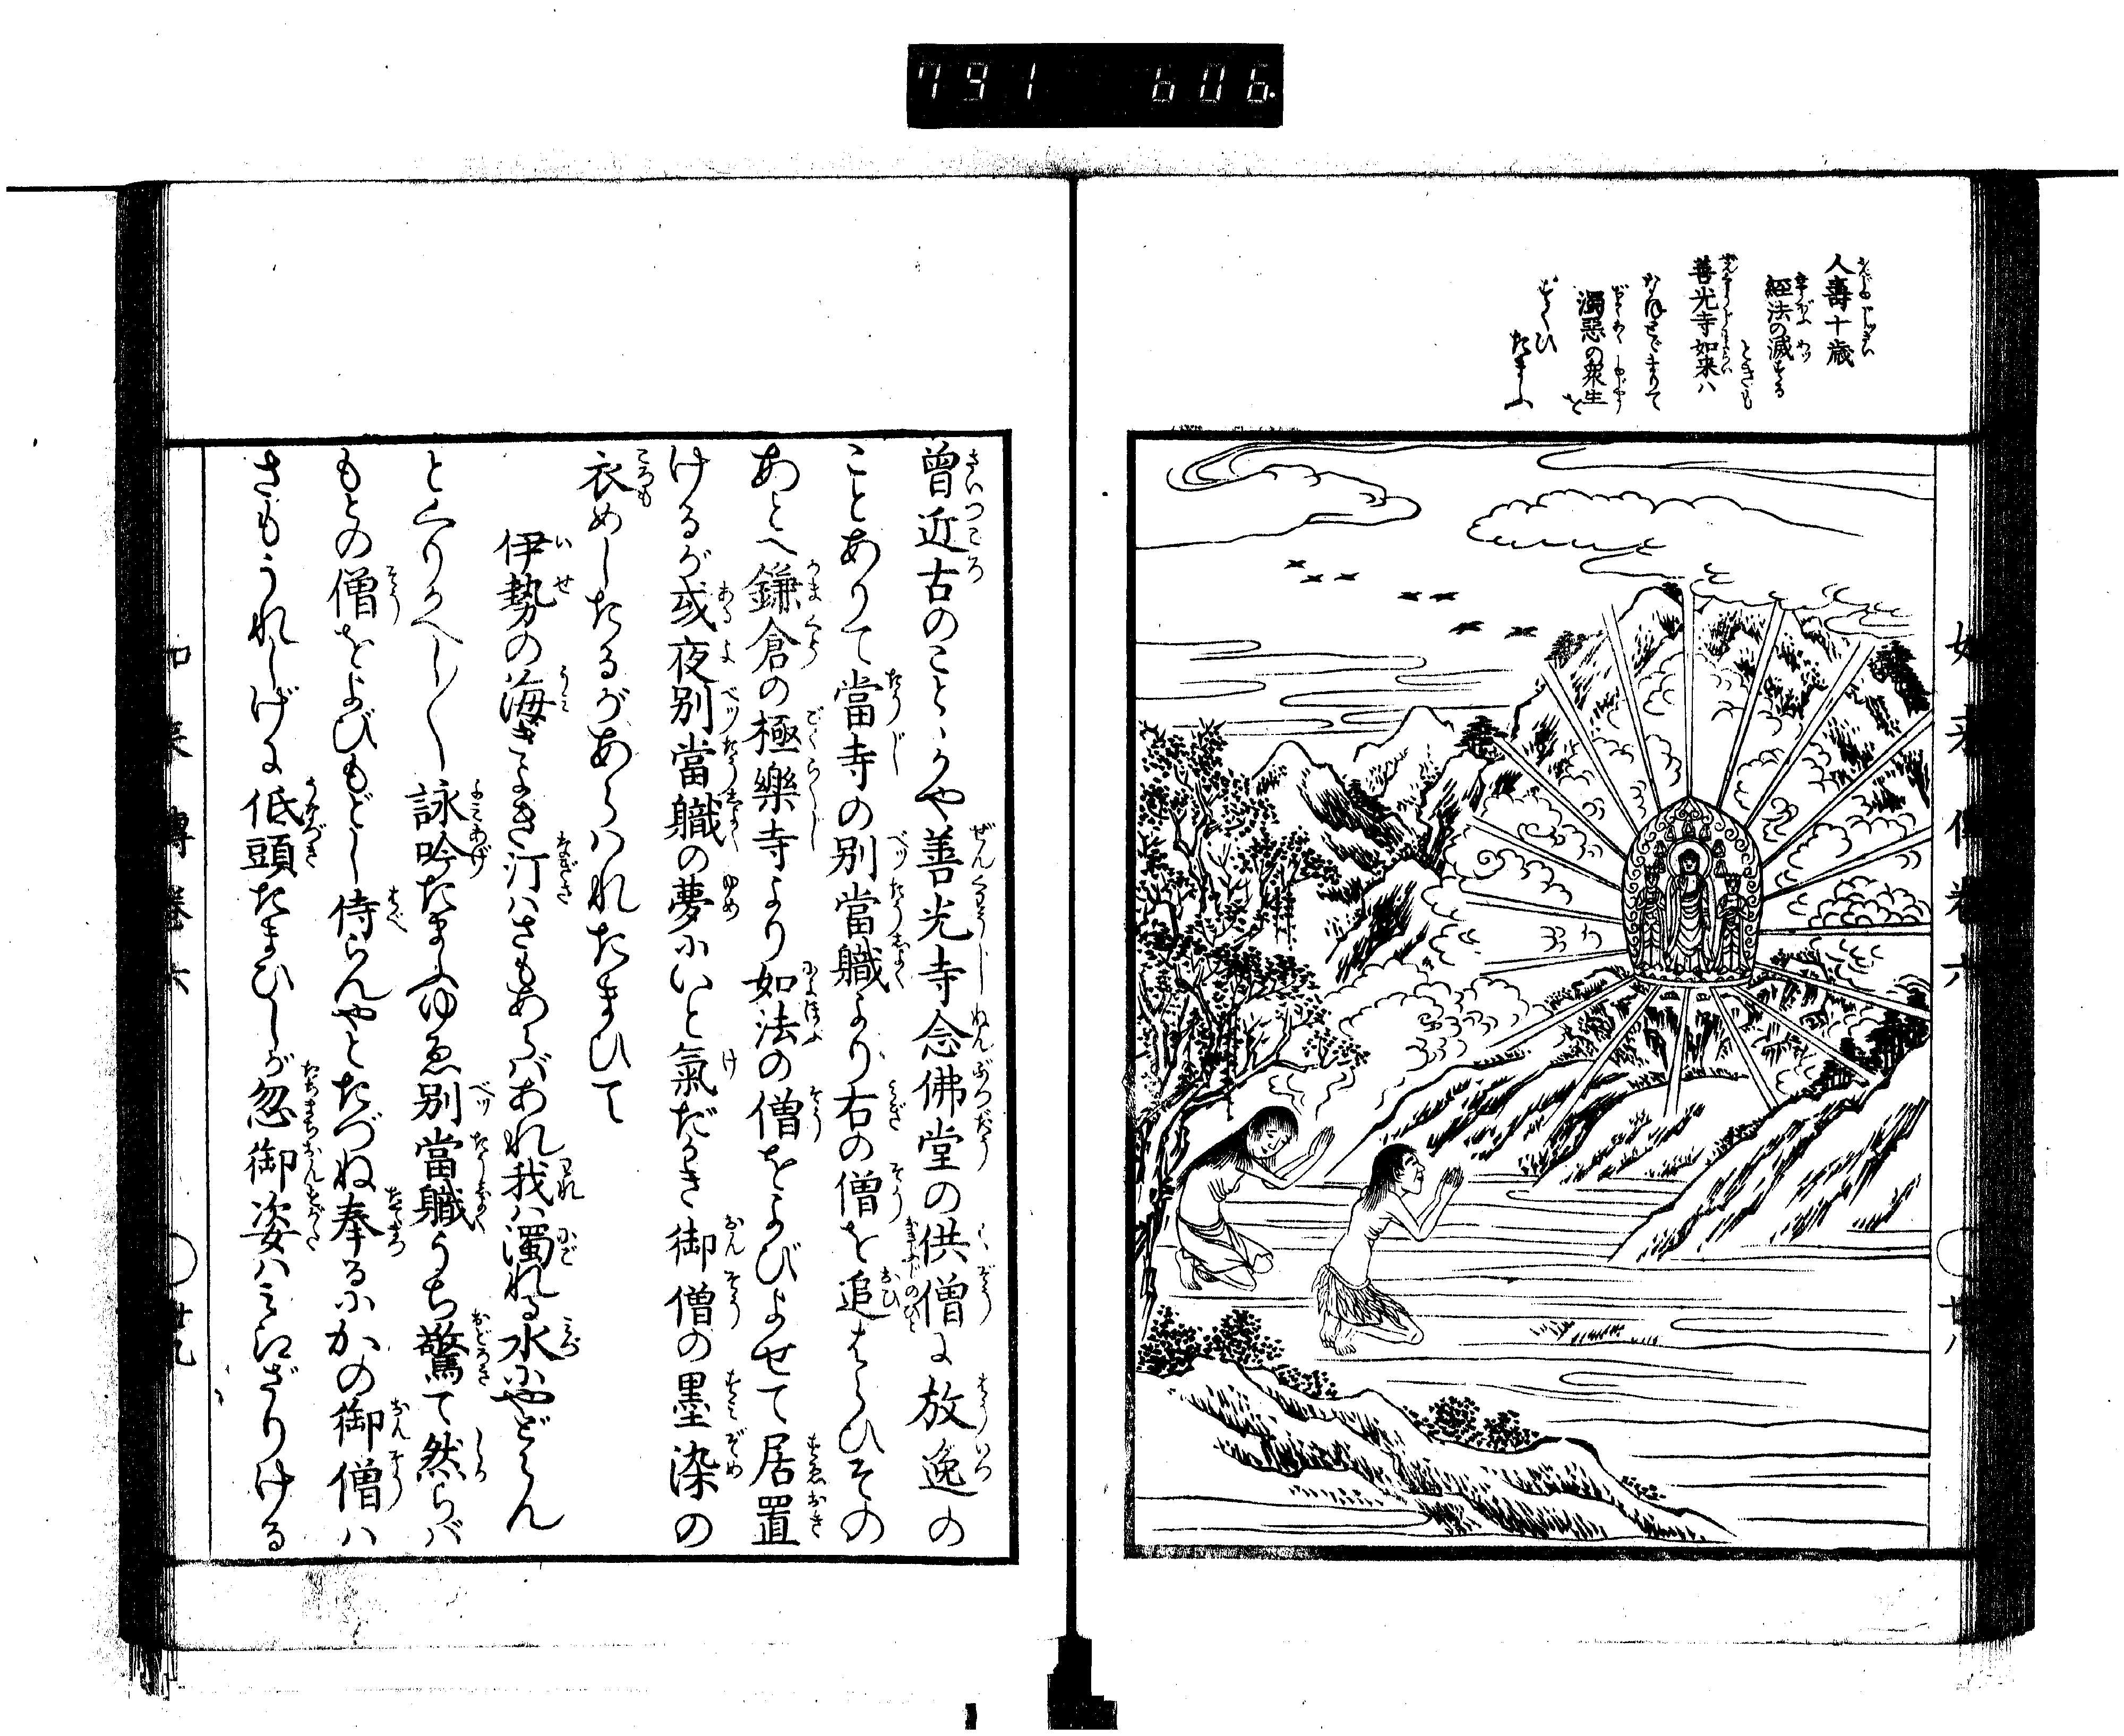 791 606.
人壽十歳
経法の滅する
ときも
善光寺如来ハ
なほとゞまりて
濁惡の衆生を
すくひ
たまふ
如来傳巻六 廿八
曾近古のことゝかや善光寺念佛堂の供僧に放逸の
ことありて當寺の別當職より右の僧を追はらひその
あとへ鎌倉の極樂寺より如法の僧をよびよせて居置
けるが或夜別當職の夢にいと氣だかき御僧の墨染の
衣めしたるがあらハれたまひて
伊勢の海きよき汀ハさもあらバあれ我ハ濁れる水にやどらん
とくりかへし〳〵詠吟たまふゆゑ別當職うち驚て然らバ
もとの僧をよびもどし侍らんやとたづね奉るにかの御僧ハ
さもうれしげに低頭たまひしが忽御姿ハミえざりける
如来傳巻六 廿九